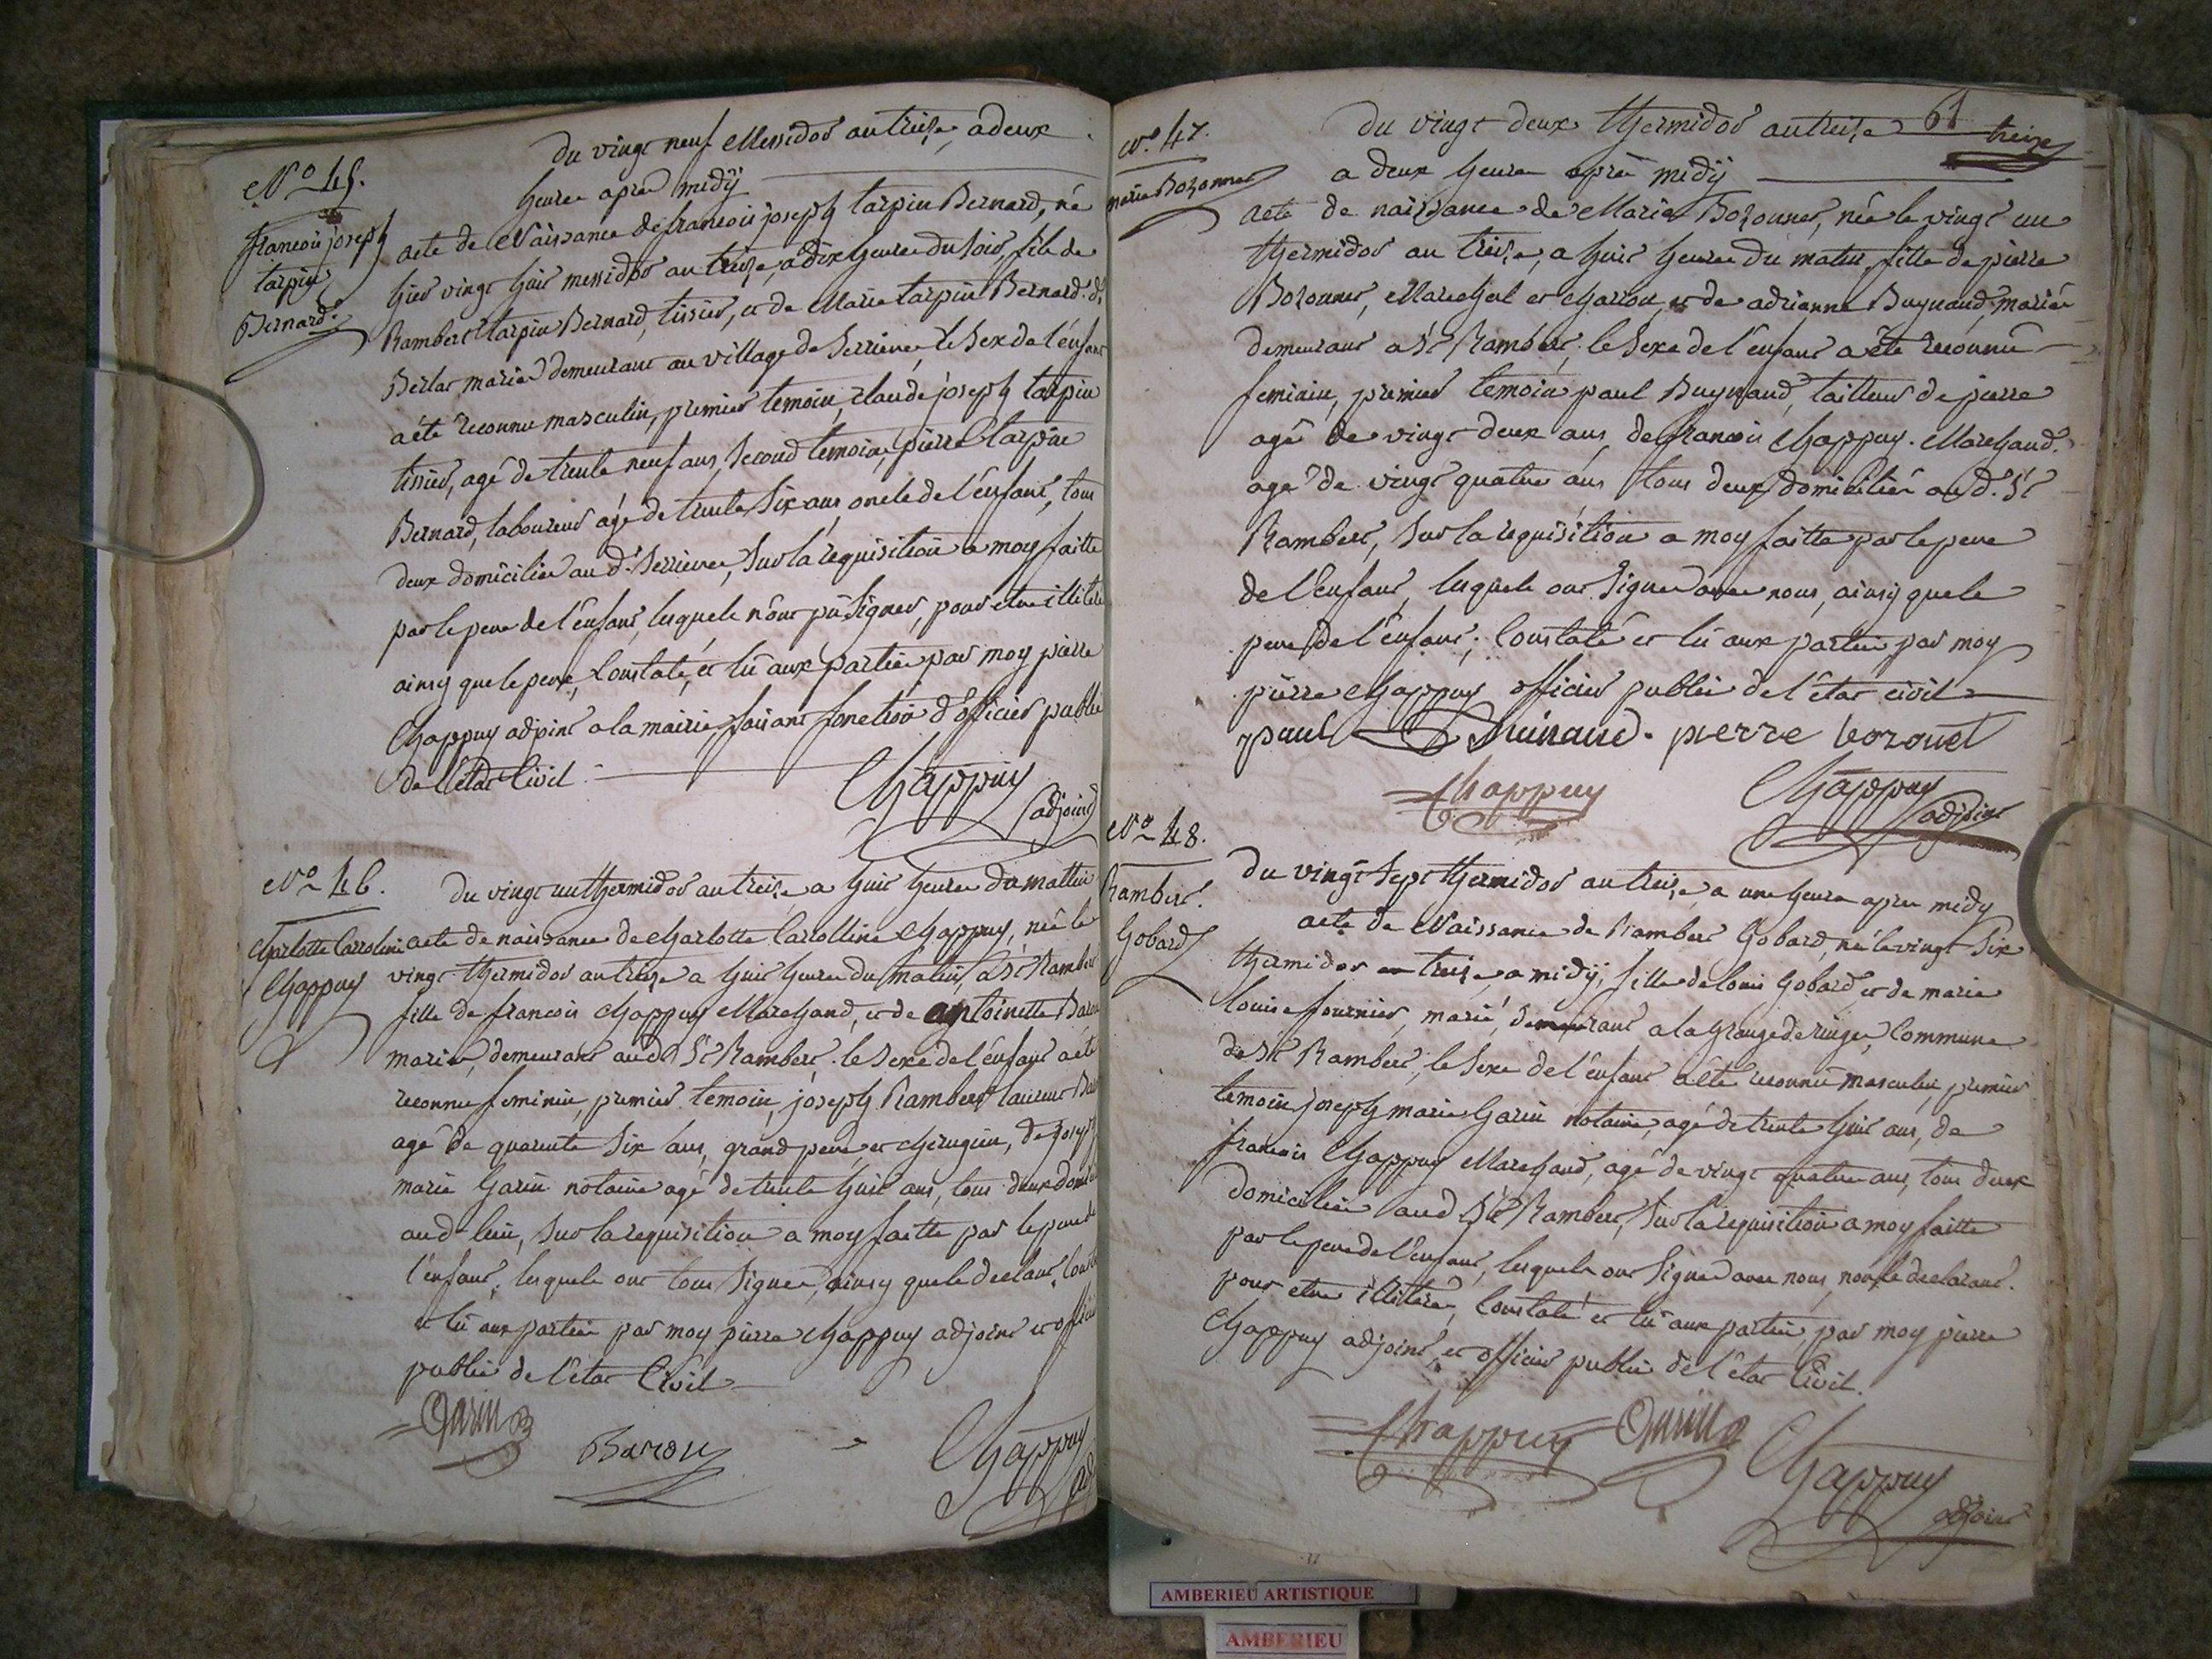 Du vingt neuf Messidor an treize, a deux
heures apres midÿ
N.o 45.
francois joseph
tarpin
Bernard.
acte de Naissance de francois joseph tarpin Bernard, né
hier vingt huit messidor an treize, a dix heures du soir, fils de
Rambert tarpin Bernard, tissier, et de Marie tarpin Bernard. d.
Berlat mariés demeurant au village de Serrieres, le Sexe de l'enfant
a été reconnu masculin, premier temoin, claude joseph tarpin
tissier, agé de trente neuf ans, Second temoin, pierre tarpin
Bernard, laboureur agé de trente Six ans, oncle de l'enfant, tous
deux domiciliés aud. Serrieres, Sur la requisition a moy faitte
par le pere de l'enfant, lesquels n'ont pû Signer, pour etre illiteré
ainsy que le pere, Constaté, et lû aux parties par moy pierre
Chappuy adjoint a la mairie, faisant fonction d'officier public
de l'état Civil
Chappuy
adjoint
N.o 46.
Charlotte Carroline
Chappuy
Du vingt un thermidor an treize a huit heures du mattin
acte de naissance de Charlotte Carrolline Chappuy, née le
vingt thermidor an treize a huit heures du matin, a St Rambert
fille de francois Chappuy Marchand, et de antoinette Baron
mariés, demeurant aud. St Rambert, le Sexe de l'enfant a été
reconnu feminin, premier temoin, joseph Rambert laurent
agé de quarente Six ans, grand pere, et cherugien, de joseph
marie Garin notaire agé de trente huit ans, tous deux
aud. lieu, Sur la requisition a moy faitte par le pere de
l'enfant, lesquels ont tous Signés, ainsy que le declarant,
et lû aux parties par moy pierre Chappuy adjoint et officier
public de l'état Civil
Garin
Baron
Chappuy
adj
61
treize
N.o 47.
marie Bozonnet
Du vingt deux thermidor an treize
a deux heures apres midÿ
acte de naissance de Marie Bozonnet, née le vingt un
thermidor an treize, a huit heures du matin, fille de pierre
Bozonnet, Marechal et Charron, et de adrianne Buynaud, mariés
demeurant a St Rambert, le Sexe de l'enfant a été reconnu
feminin, premier temoin paul Buynaud, tailleur de pierre
agé de vingt deux ans, de francois Chappuy. Marchand.
agé de vingt quatre ans tous deux domiciliés aud. St
Rambert, Sur la requisition a moy faitte par le pere
de l'enfant, lesquels ont Signer avec nous, ainsy que le
pere de l'enfant; Constaté et lû aux parties par moy
pierre Chappuy officier public de l'état civil
paul Buinaud. pierre bozonet
Chappuy
Chappuy
adjoint
N.o 48.
Rambert.
Gobard
Du vingt Sept thermidor an treize a une heure apres midy
acte de Naissance de Rambert Gobard, né le vingt Six
thermidor an treize, a midÿ, fille de louis Gobard et de marie
louise fournier, marié, demeurant a la grange de Commune
de St Rambert, le Sexe de l'enfant a été reconnu masculin, premier
temoin joseph marie Garin notaire, agé de trente huit ans, de
francois Chappuy Marchand, agé de vingt quatre ans, tous deux
domiciliés aud. St Rambert, Sur la requisition a moy faitte
par le pere de l'enfant, lesquels ont Signé avec nous, non le declarant.
pour etre illiteré, Constaté et lû aux parties, par moy pierre
Chappuy adjoint et officier public de l'état Civil.
Chappuy Garin
Chappuy
adjoint
AMBERIEU ARTISTIQUE
AMBERIEU